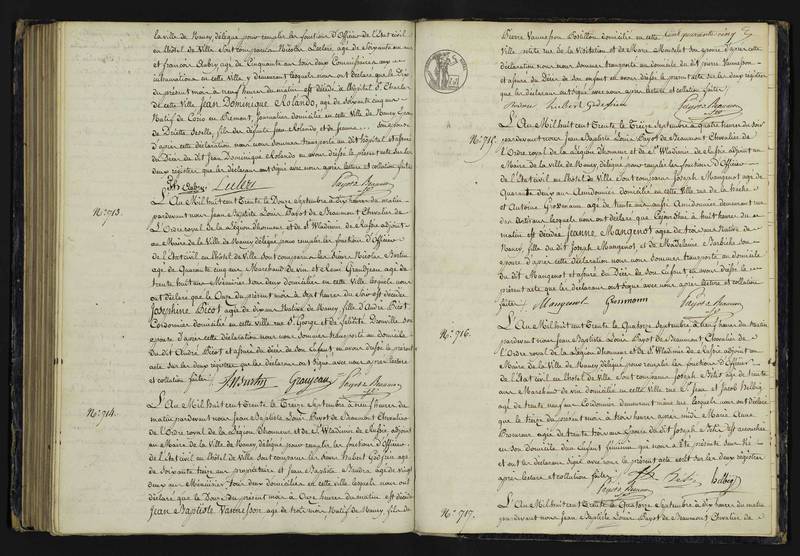 la ville de Nancy, délégué pour remplir les fonctions d'Officier de l'Etat civil
en l'hôtel de Ville sont comparus Nicolas Leclerc, âgé de Soixante un ans
et françois Aubry âgé de Cinquante un ans tous deux Commissaires aux
inhumations en cette ville y demeurant lesquels nous ont déclaré que le Dix
du présent mois à neuf heures du matin est décédé à l'hôpital St Charles
de cette ville Jean Dominique Rolando, âgé de soixante cinq ans
Natif de en Piémont, journalier domicilié en cette Ville de Nancy
fils des défunts Jean Rolando, et de Jeanne
D'après cette déclaration nous nous sommes transporté au dit hôpital et assuré
du Décès du dit Jean Dominique Rolando et avons dressé le présent acte sur les
deux registres, que les déclarans ont signé avec nous après lecture et collation faites
Aubry Leclerc Payot de Beaumont
N° 713.
L'An Mil huit cent Trente le Douze Septembre à dix heures du matin
pardevant nous Jean Baptiste Louis Payot de Beaumont Chevalier de
l'Ordre royal de la Légion d'honneur et de St Wladimir de Russie adjoint
au Maire de la Ville de Nancy délégué pour remplir les fonctions d'Officier
de l'Etat civil en l'hôtel de Ville sont comparus les Sieurs Nicolas
âgé de Quarante cinq ans Marchand de vin et Remi Grandjean âgé de
trente huit ans Menuisier tous deux domiciliés en cette Ville lesquels nous
ont déclaré que le Onze du présent mois à Sept heures du Soir est décédée
Joséphine Bicot âgée de dix ans Native de Nancy, fille d'André Bicot
Cordonnier domicilié en cette ville rue St George et de félicité Danville son
épouse d'après cette déclaration nous nous sommes transporté au domicile
du dit André Bicot et assuré du décès de son Enfant et avons dressé le présent
acte sur les deux registres, que les déclarans ont signé avec nous après lecture
et collation faites Grandjean Payot de Beaumont
N° 714.
L'An Mil huit cent Trente le Treize Septembre à neuf heures du
matin pardevant nous Jean Baptiste Louis Payot de Beaumont Chevalier
de l'Ordre royal de la Légion d'honneur et de St Wladimir de Russie adjoint
au Maire de la Ville de Nancy délégué pour remplir les fonctions d'Officier
de l'Etat civil en l'hôtel de Ville sont comparus les Sieurs Hubert
de Soixante treize ans propriétaire et Jean Baptiste âgé de vingt
deux ans Menuisier tous deux domiciliés en cette ville lesquels nous ont
déclaré que le Douze du présent mois à Onze heures du matin est décédé
Jean Baptiste Vannesson âgé de trois mois, Natif de Nancy, fils de
Cent quarante cinq
Pierre Vannesson domicilié en cette
Ville petite rue de la Visitation et de Marie son épouse d'après cette
déclaration nous nous sommes transporté au domicile du dit pierre Vannesson
et assuré du Décès de son enfant et avons dressé le présent acte sur les deux registres
que les déclarans ont signé avec nous après lecture et collation faites
Hubert Payot de Beaumont
N° 715.
L'An Mil huit cent Trente le Treize Septembre à quatre heures du soir
pardevant nous Jean Baptiste Louis Payot de Beaumont Chevalier de
l'Ordre royal de la Légion d'honneur et de St Wladimir de Russie adjoint au
Maire de la Ville de Nancy, délégué pour remplir les fonctions d'Officier
de l'Etat civil en l'hôtel de Ville sont comparus Joseph Mangenot âgé de
Quarante deux ans Amidonnier domicilié en cette Ville rue de la
et Antoine âgé de trente ans aussi Amidonnier demeurant rue
des lesquels nous ont déclaré que Cejourd'hui à huit heures du
matin est décédée Jeanne Mangenot âgée de trois ans Native de
Nancy, fille du dit Joseph Mangenot et de Madeleine Barbiche son
épouse d'après cette déclaration nous nous sommes transporté au domicile
du dit Mangenot et assuré du Décès de son Enfant et avons dressé le
présent acte que les déclarans ont signé avec nous après lecture et collation
faites Mangenot Payot de Beaumont
N° 716.
L'An Mil huit cent Trente le Quatorze Septembre à neuf heures du Matin
pardevant nous Jean Baptiste Louis Payot de Beaumont Chevalier de
l'Ordre royal de la Légion d'honneur et de St Wladimir de Russie adjoint au
Maire de la Ville de Nancy délégué pour remplir les fonctions d'Officier
de l'Etat civil en l'hôtel de Ville sont comparus Joseph âgé de trente
ans Marchand de vin domicilié en cette Ville rue St Jean et Jacob Helbig
âgé de trente neuf ans Cordonnier demeurant même rue lesquels nous ont déclaré
que le treize du présent mois à trois heures après midi Marie Anne
âgée de trente trois ans Epouse du dit Joseph est accouchée
en son domicile d'un Enfant féminin qui nous a été présenté sans Vie
et ont les déclarans signé avec nous le présent acte écrit sur les deux registres
après lecture et collation faites Helbig
Payot de Beaumont
N° 717.
L'An Mil huit cent Trente le Quatorze Septembre à dix heures du matin
pardevant nous Jean Baptiste Louis Payot de Beaumont Chevalier de